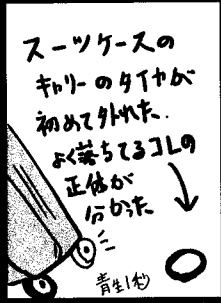 スーツケースの
キャリーのタイヤが
初めて外れた.
よく落ちてるコレの
正体が
分かった
青生1秒